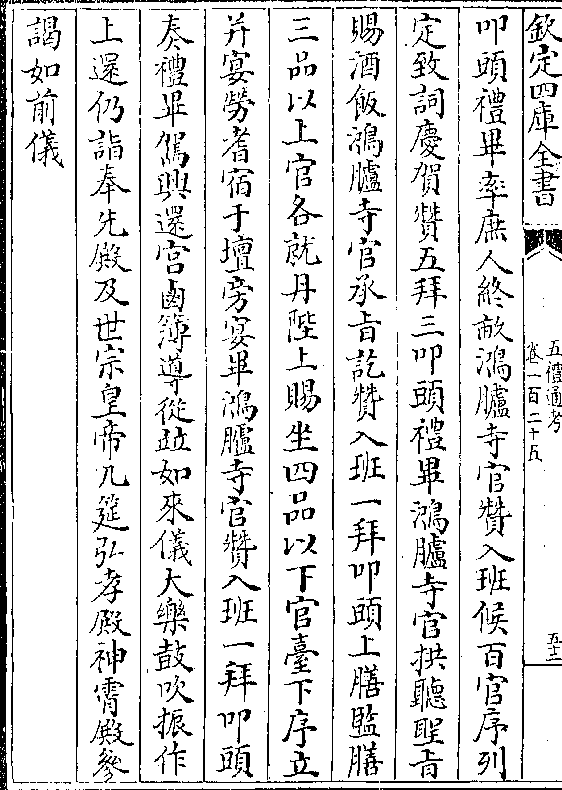 欽定四庫全書
五禮通考
卷一百二十五
五十一
叩頭禮畢率庶人終畝鴻臚寺官贊入班候百官序列
定致詞慶賀贊五拜三叩頭禮畢鴻臚寺官拱聽聖旨
賜酒飯鴻臚寺官承旨訖贊入班一拜叩頭上膳監膳
三品以上官各就丹陛上賜坐四品以下官臺下序立
并宴勞耆宿于壇旁宴畢鴻臚寺官贊入班一拜叩頭
奏禮畢駕興還宮鹵簿導從竝如來儀大樂鼓吹振作
上還仍詣奉先殿及世宗皇帝几筵弘孝殿神霄殿參
謁如前儀